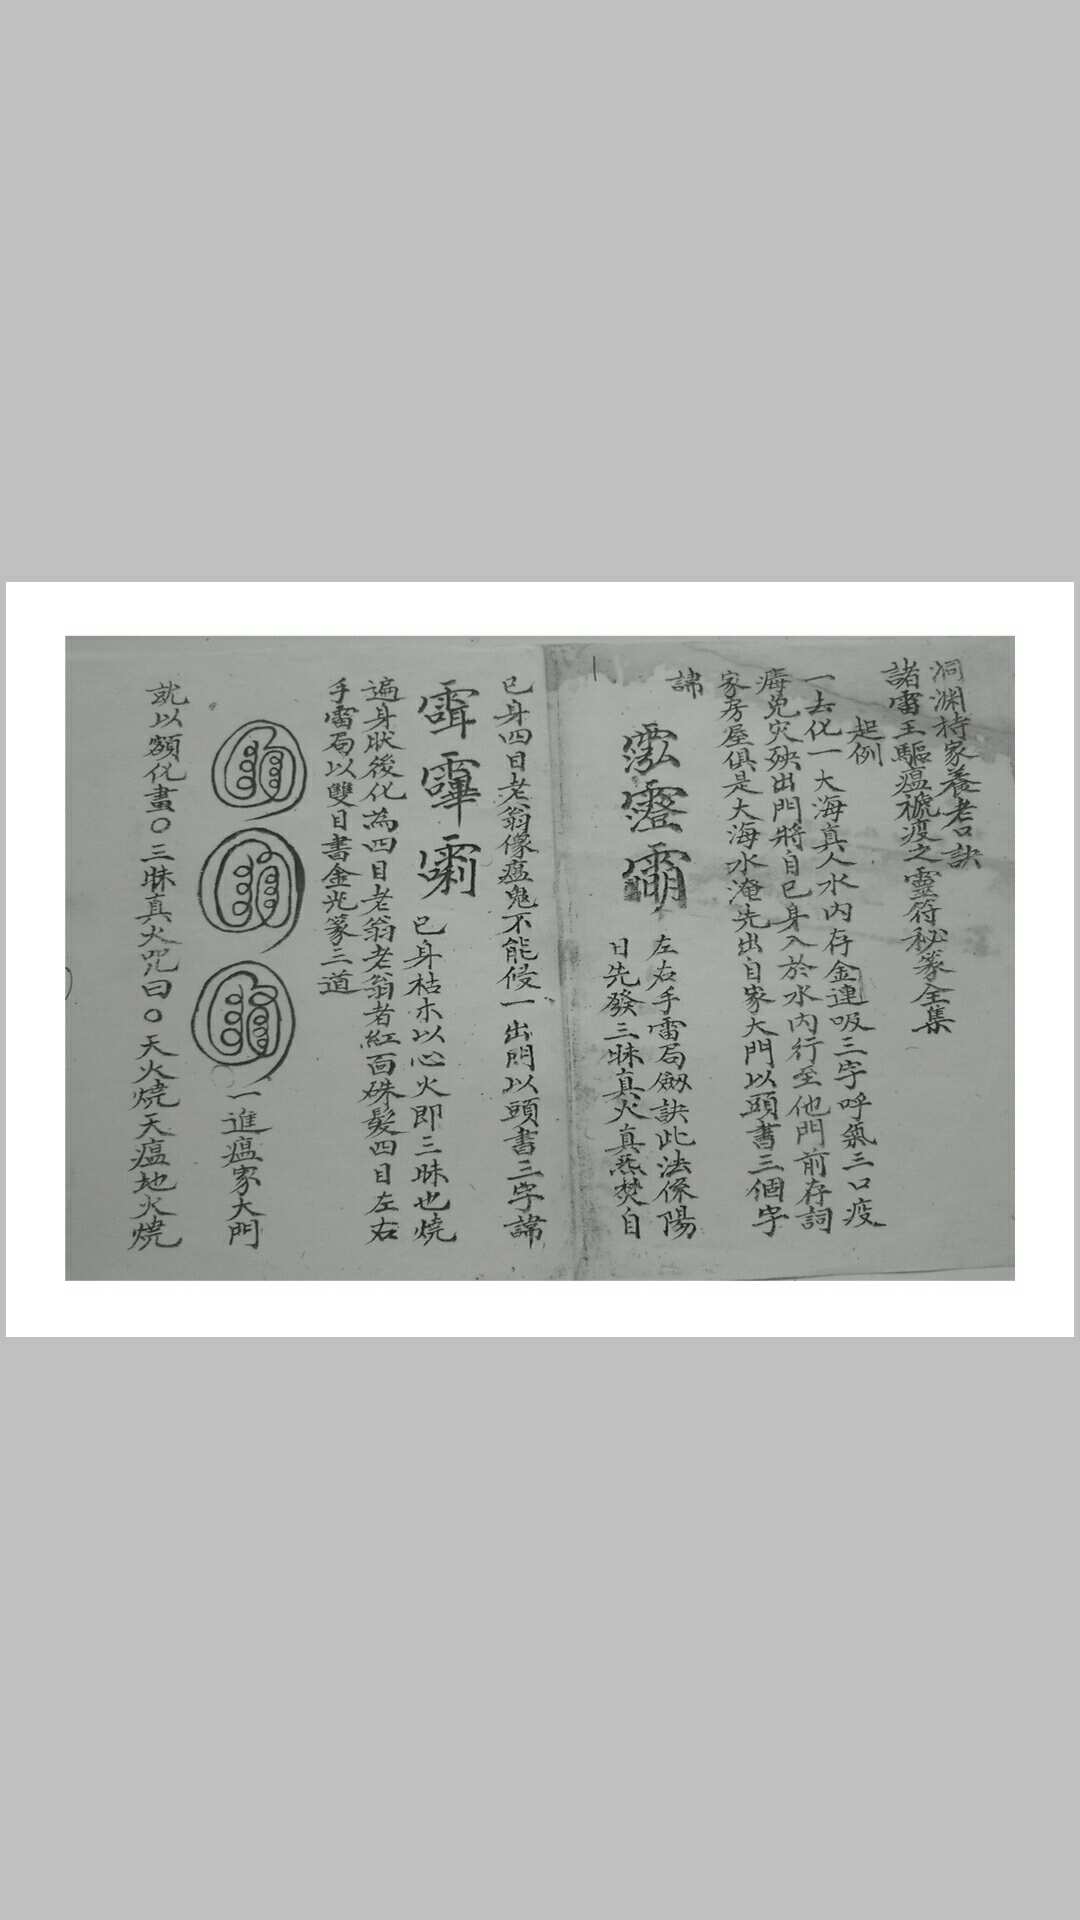 洞渊持家養老口訣
諸雷王驅瘟禠疫之靈符秘篆全集
起例
一去化一大海真人水內存金連吸三字呼氣三口疫
免灾殃出門將自已身入於水內行至他門前存詞
家房屋俱是大海水淹先出自家大門以頭書三個字
諱
左右手雷局劔訣此法係陽
日先發三昧真火真炁焚自
已身四目老翁像瘟鬼不能侵一出門以頭書三字諱
已身枯木以心火即三昧也燒
遍身狀後化為四目老翁老翁者紅面硃髮四目左右
手雷局以雙目書金光篆三道
一進瘟家大門
就以額化畫〇三昧真火咒曰〇天火燒天瘟地火燒